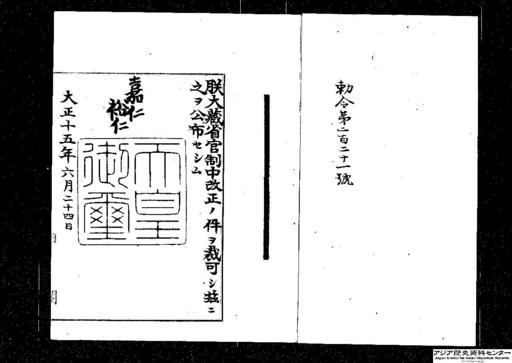 勅令第二百二十一號
朕大藏省官制中改正ノ件ヲ裁可シ茲ニ
之ヲ公布セシム
嘉仁
裕仁
天皇
御璽
大正十五年六月二十四日
アジア歴史資料センター
Japan Center for Asian Historical Records